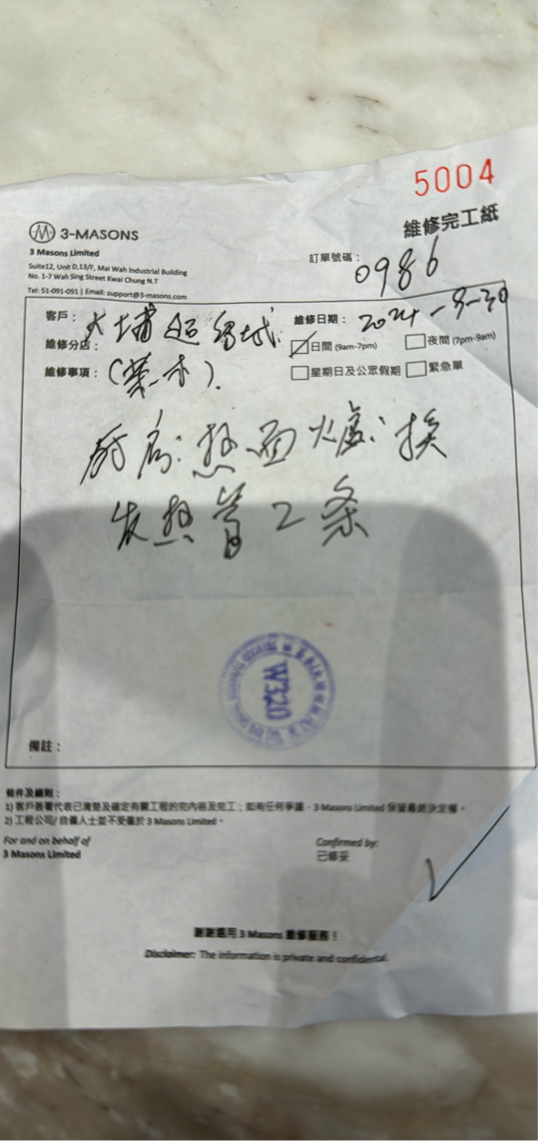 5004
維修完工紙
3-MASONS
3 Masons Limited
Suite12, Unit D,13/F, Mai Wah Industrial Building
No. 1-7 Wah Sing Street Kwai Chung N.T
Tel: 51-091-091 | Email: support@3-masons.com
訂單號碼： 0986
客戶： 大埔超級城
維修日期： 2024-9-30
維修分店：
日間 (9am-7pm) 夜間 (7pm-9am)
維修事項：
星期日及公眾假期 緊急單
厨房: 热面火爐: 换
发热管2条
W320
備註：
條件及細則：
1) 客戶簽署代表已清楚及確定有關工程的完內容及完工；如有任何爭議，3 Masons Limited 保留最終決定權。
2) 工程公司/自僱人士並不受僱於 3 Masons Limited。
For and on behalf of
3 Masons Limited
Confirmed by:
已修妥
謝謝選用 3 Masons 維修服務！
Disclaimer: The information is private and confidential.